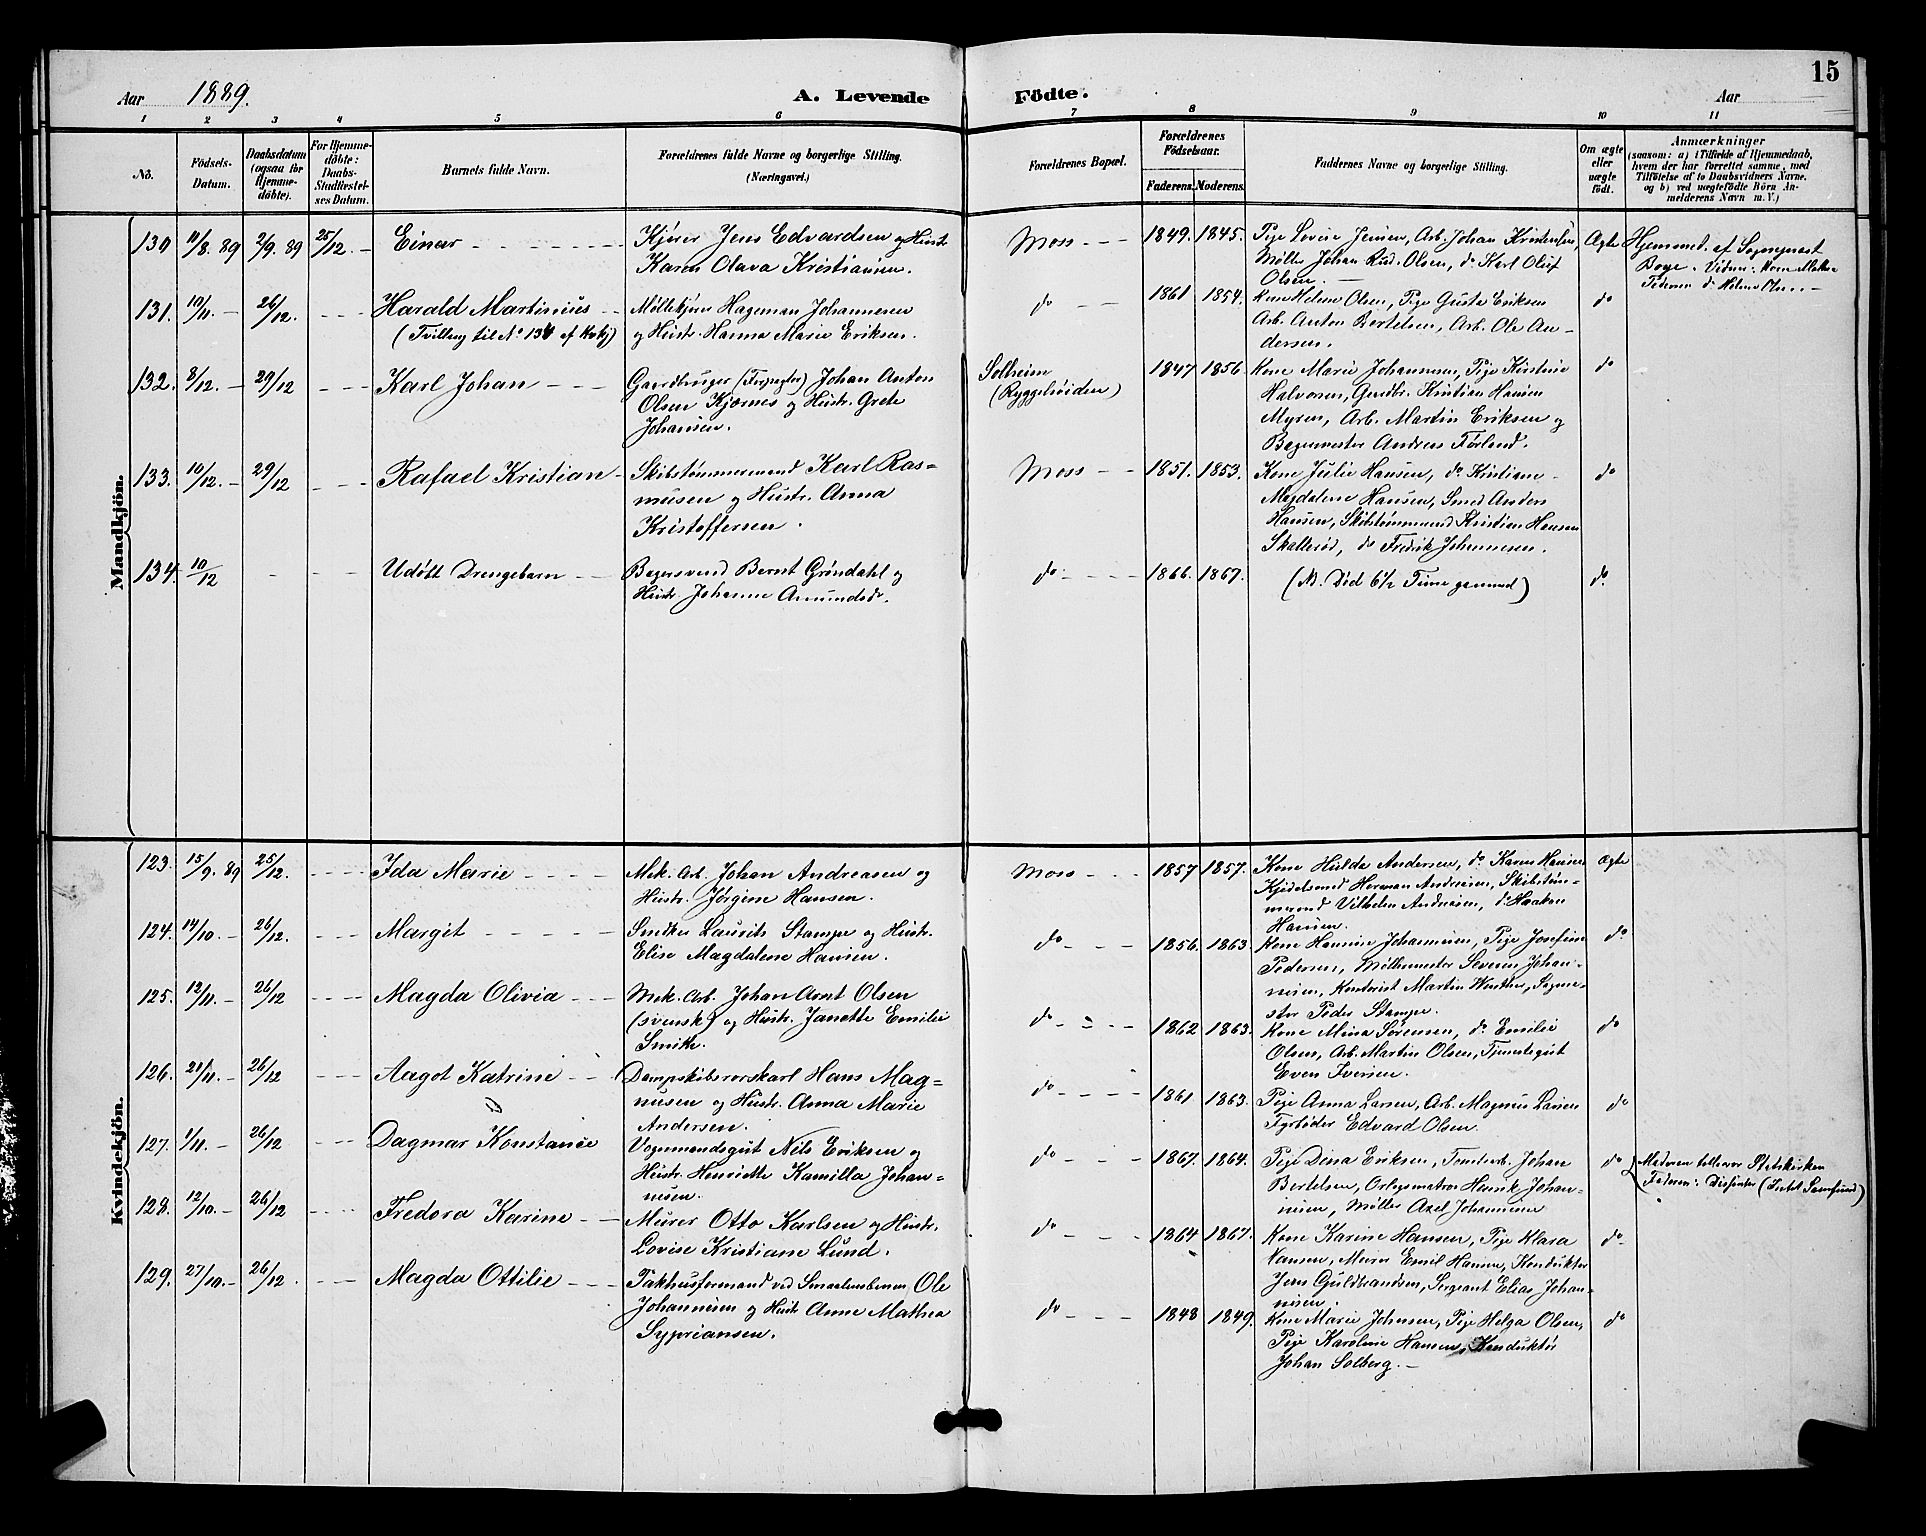 15
Aar 1889.
A. Levende Födte.
Aar
1 2 3 4 5 6 7 8 9 10 11
No.
Födsels-
Datum.
Daabsdatum
(ogsaa for
Hjemme-
døbte).
For Hjemme-
døbte:
Daabs-
Stadfæstel-
ses Datum.
Barnets fulde Navn.
Forældrenes fulde Navne og borgerlige Stilling.
(Næringsvei.)
Forældrenes Bopæl.
Forældrenes
Födselsaar.
Faderens. Moderens.
Faddernes Navne og borgerlige Stilling.
Om ægte
eller
uægte
födt.
Anmærkninger
(saasom: a) i Tilfælde af Hjemmedaab,
hvem der har forrettet samme, med
Tilföielse af to Daabsvidners Navne.
og b) ved uægtefödte Börn An-
melderens Navn m. V.)
Mandkjön.
130 11/8. 89 2/9. 89 25/12. Einar
Kjører Jens Edvardsen og Hustr.
Karen Olava Kristiansen.
Moss 1849. 1845.
Pige Lovise Jensen, Arb. Johan Kristensen,
Møller Johan Rud. Olsen, do Karl Oluf
Olsen.
Ægte
Hjemmed. af Sogneprest
Boye. Vidner: Kone Mathea
Pedersen do Helene Olsen
131. 10/11. 26/12. Harald Martinius
(Tvilling til No 134 af Kvkj)
Møllekjører Hageman Johannesen
og Hustr. Hanna Marie Eriksen.
do 1861 1854.
Kone Helene Olsen, Pige Gusta Eriksen
Arb. Anton Bertelsen, Arb. Ole An-
dersen.
do
132. 8/12. 29/12 Karl Johan
Gaardbruger (Forpagter) Johan Anton
Olsen Kjærnes og Hustr. Grete
Johansen.
Solheim
(Ryggehøiden)
1847 1856
Kone Marie Johannesen, Pige Kristine
Halvorsen, Gaardbr. Kristian Hansen
Myren, Arb. Martin Eriksen og
Bagermester Andreas Førlund.
do
133. 10/12. 29/12 Rafael Kristian
Skibstømmermand Karl Ras-
musen og Hustr. Anna
Kristoffersen.
Moss 1851. 1853.
Kone Julie Hansen, do Kristiane
Magdalene Hansen, Smed Anders
Hansen, Skibstømmermand Kristian Hansen
Skallerød, do Fredrik Johannesen.
do
134. 10/12 Udøbt Drengebarn
Bagersvend Bernt Grøndahl og
Hustr. Johanne Amundsdr.
do 1866. 1867.
(M. Død 6 1/2 Time gammel)
do.
Kvindekjön.
123. 15/9. 89 25/12. Ida Marie
Mek. Arb. Johan Andreasen og
Hustr. Jørgine Hansen.
Moss 1857 1857.
Kone Hulda Andersen, do Karen Hansen
Kjedelsmed Herman Andreasen, Skibstøm-
mermand Vilhelm Andreasen, do Haakon
Hansen.
Ægte
124. 14/10. 26/12. Margit
Snedker Laurits Stampe og Hustr.
Elise Magdalene Hansen.
do 1856. 1863.
Kone Hansine Johannesen, Pige Josefine
Pedersen, Møllemester Severin Johan-
nesen, Kontorist Martin Winther,
Peder Stampe.
do
125. 12/11. 26/12 Magda Olivia
Mek. Arb. Johan Arnt Olsen
(svensk) og Hustr. Janette Emilie
Smith.
do 1862 1863.
Kone Mina Sørensen, do Emilie
Olsen, Arb. Martin Olsen, Tjenestegut
Even Iversen.
do
126. 21/11. 26/12 Aagot Katrine
Dampskibsrorskarl Hans Mag-
nusen og Hustr. Anna Marie
Andersen.
do 1861 1863.
Pige Anna Larsen, Arb. Magnus Larsen
Fyrbøder Edvard Olsen.
do
127. 1/11. 26/12 Dagmar Konstance
Vognmandsgut Nils Eriksen og
Hustr. Henriette Kamilla Johan-
nesen.
do 1867. 1864.
Pige Dina Eriksen, Tomtearb. Johan
Bertelsen, Orlogsmatros Henrik Johan-
nesen, Møller Axel Johannesen
do
Moderen tilhører Statskirken
Faderen: Dissenter (Intet Samfund)
128. 12/10. 26/12 Fredora Karine
Murer Otto Karlsen og Hustr.
Lovise Kristiane Lund.
do 1864 1867.
Kone Karine Hansen, Pige Klara
Hansen, Murer Emil Hansen, Konduktør
Jens Guldbrandsen, Sergeant Elias Johan-
nesen.
do
129. 27/10. 26/12. Magda Ottilie
Pakhusformand ved Smaalensbanen Ole
Johannesen og Hustr. Anne Mathea
Sypriansen.
do 1848 1849.
Kone Marie Johnsen, Pige Helga Olsen,
Pige Karoline Hansen, Konduktør
Johan Solberg.
do